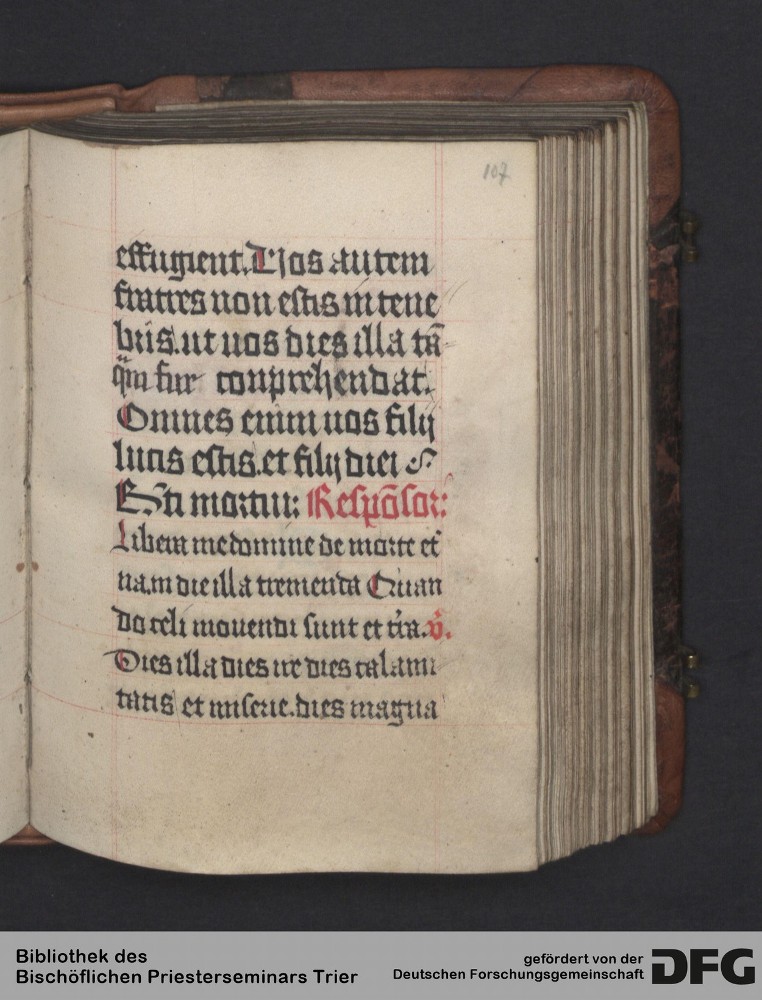 107
effugient. Vos autem
fratres non estis in tene
bris. ut uos dies illa tā
q̄m fur conprehendat.
Omnes enim uos filij
lucis estis. et filij diei
mortui: Respōsor:
Libera me domine de morte et
na. in die illa tremenda Quan
do celi mouendi sunt et t̄ra. v̄.
Dies illa dies ire dies calami
tatis et miserie. dies magna
Bibliothek des
Bischöflichen Priesterseminars Trier
gefördert von der
Deutschen Forschungsgemeinschaft
DFG